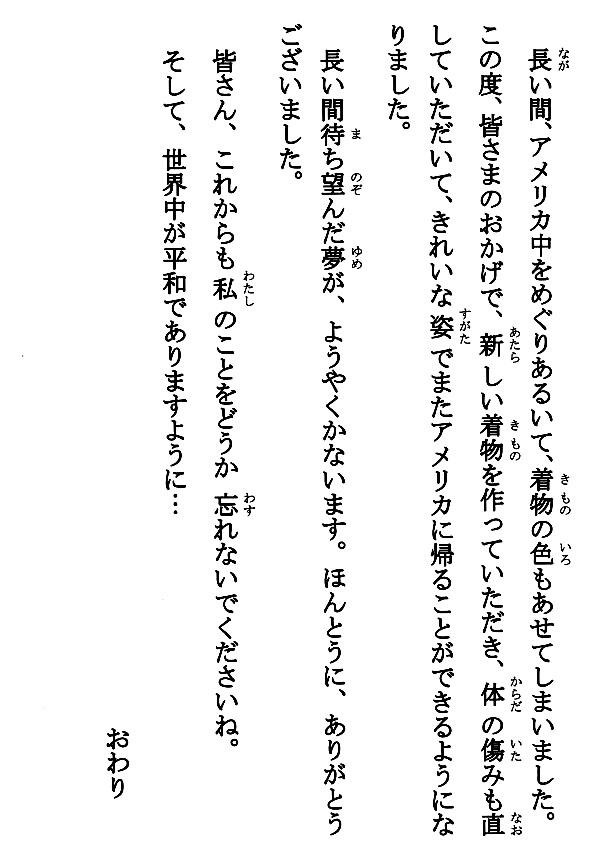 長い間、アメリカ中をめぐりあるいて、着物の色もあせてしまいました。
この度、皆さまのおかげで、新しい着物を作っていただき、体の傷みも直
していただいて、きれいな姿でまたアメリカに帰ることができるようにな
りました。
長い間待ち望んだ夢が、ようやくかないます。ほんとうに、ありがとう
ございました。
皆さん、これからも私のことをどうか忘れないでくださいね。
そして、世界中が平和でありますように…
おわり